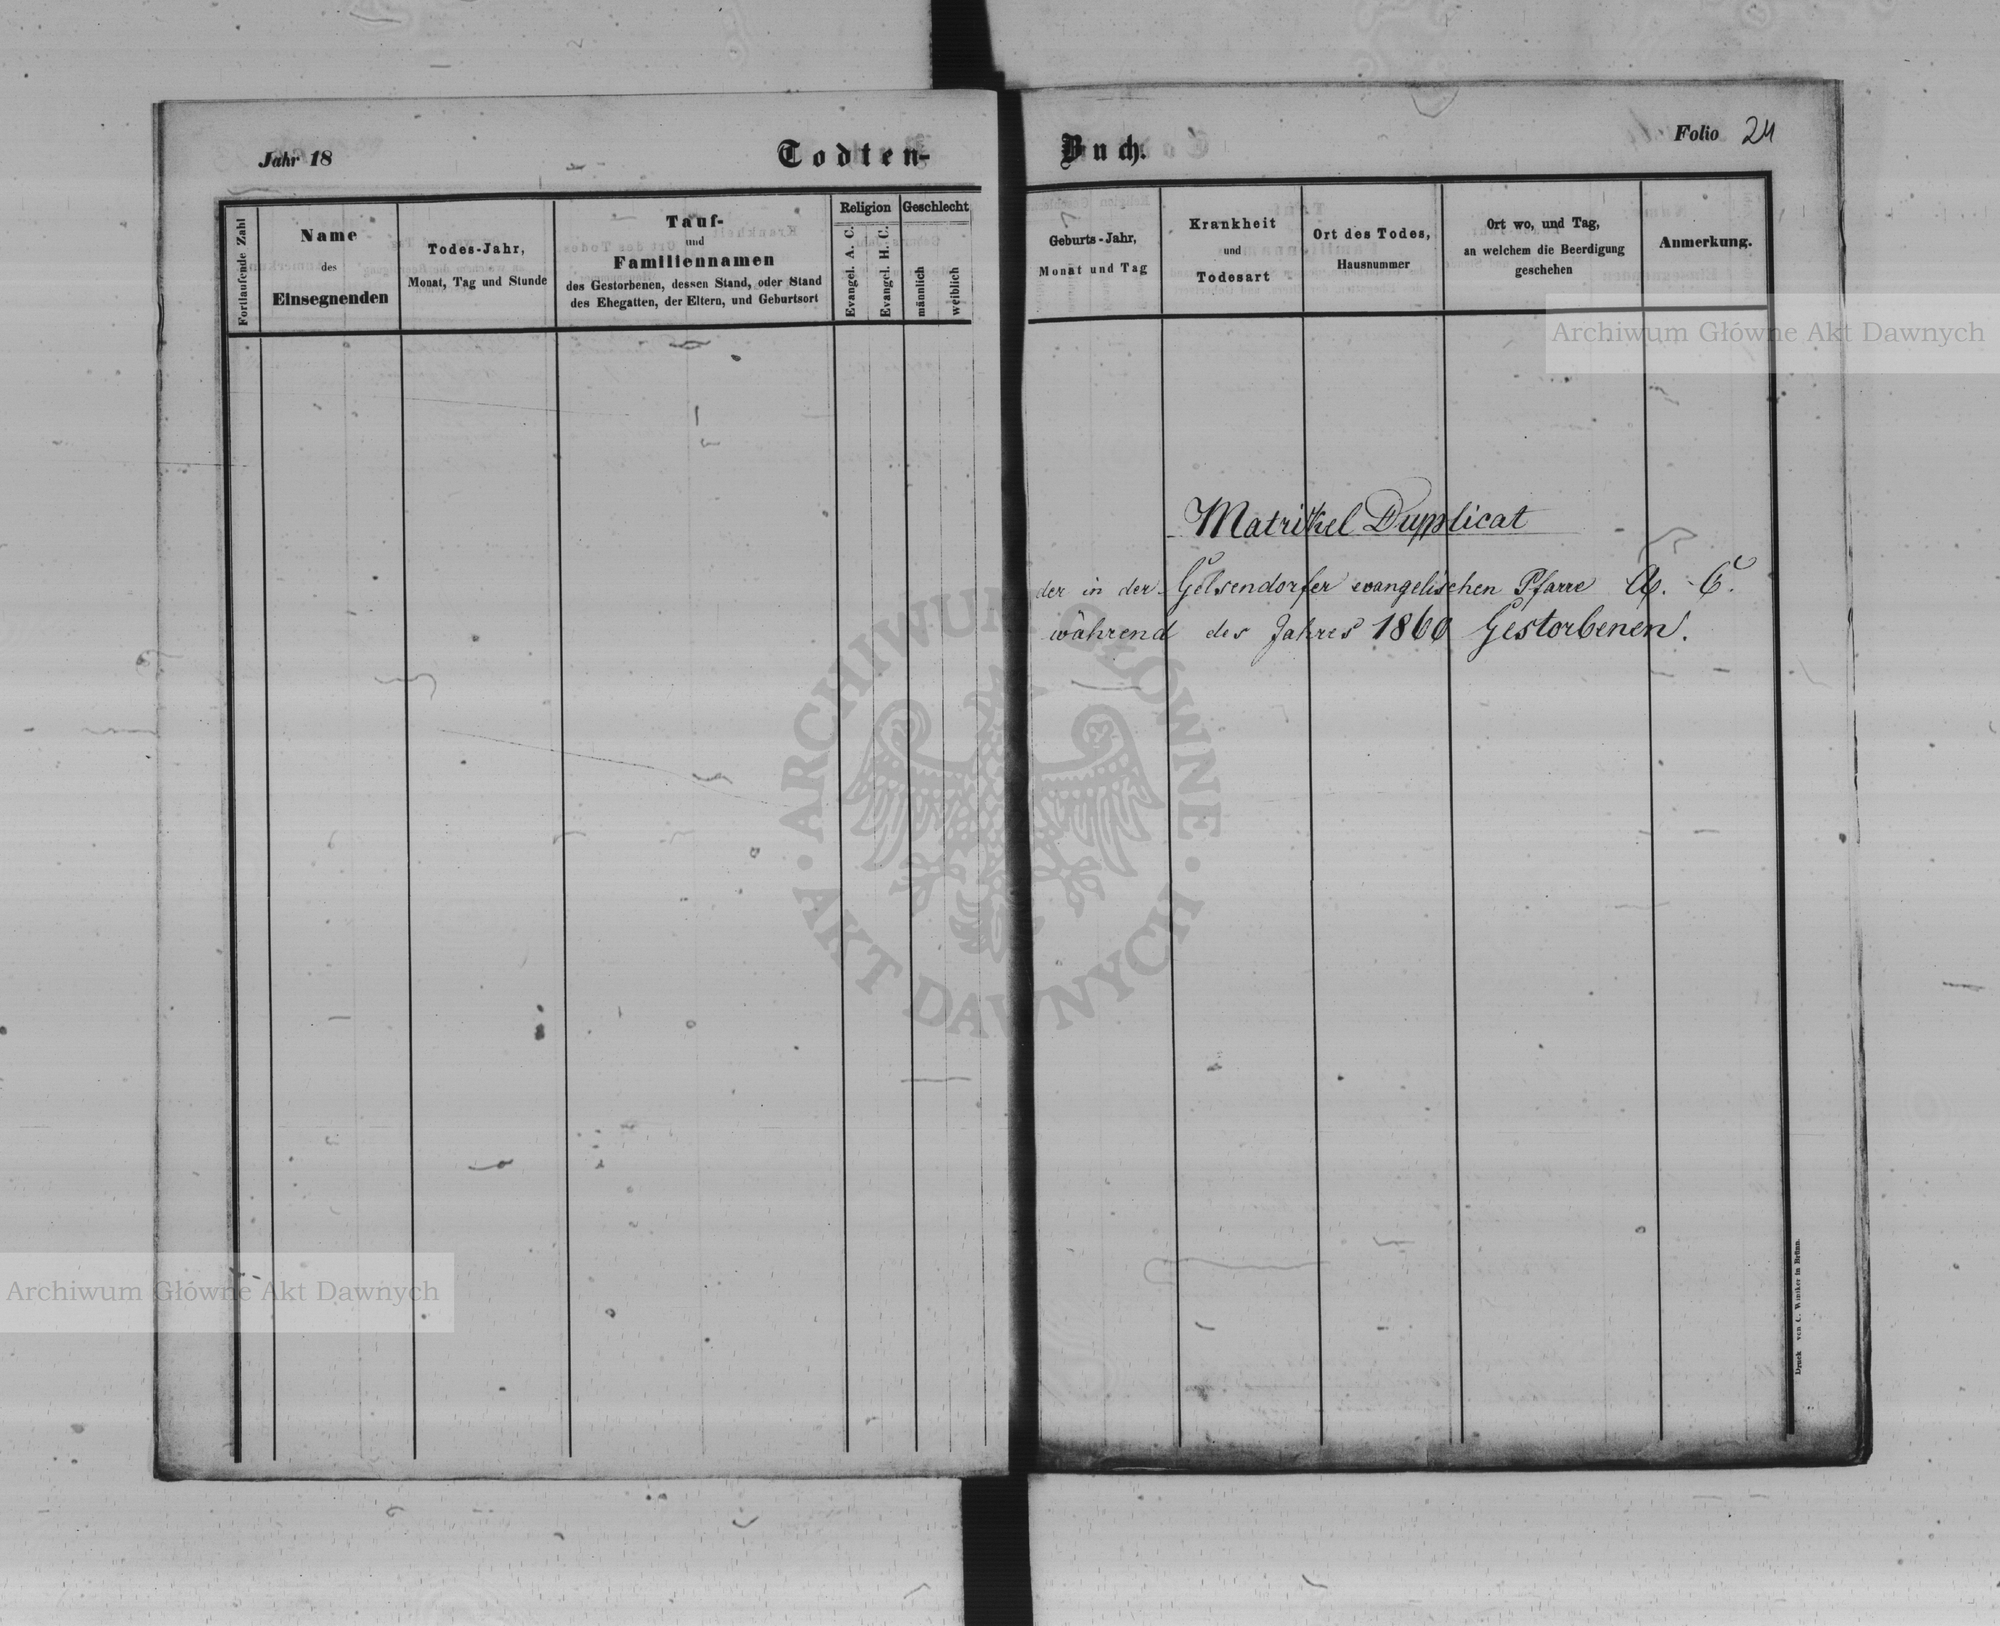 Jahr 18
Todten-
Fortlaufende Zahl
Name
des
Einsegnenden
Todes-Jahr,
Monat, Tag und Stunde
Tauf-
und
Familiennamen
des Gestorbenen, dessen Stand, oder Stand
des Ehegatten, der Eltern, und Geburtsort
Religion
Evangel. A. C.
Evangel. H. C.
Geschlecht
männlich
weiblich
Buch.
Folio 24
Geburts-Jahr,
Monat und Tag
Krankheit
und
Todesart
Ort des Todes,
Hausnummer
Ort wo, und Tag,
an welchem die Beerdigung
geschehen
Anmerkung.
Archiwum Główne Akt Dawnych
Matrikel Dupplicat
der in der Gelsendorfer evangelischen Pfarre A. C.
während des Jahres 1860 Gestorbenen.
ARCHIWUM GŁÓWNE
AKT DAWNYCH
Archiwum Główne Akt Dawnych
Druck von C. Winiker in Brünn.